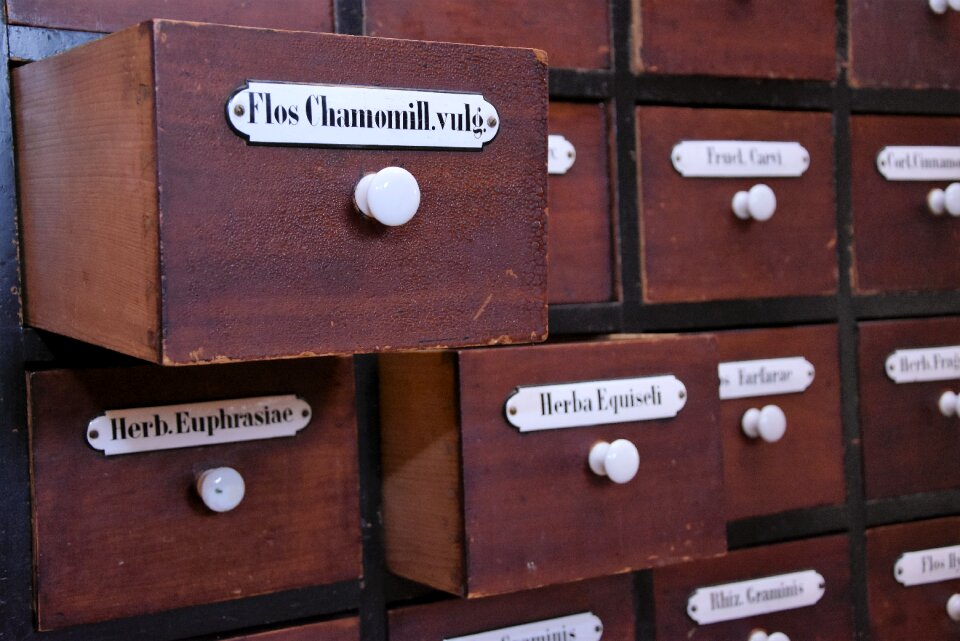 Flos Chamomill.vulg.
Fruct. Carvi
Cort.Cinnamo
Herb.Euphrasiae
Herba Equiseti
Farfarae
Herb.Frag
Rhiz. Graminis
Flos
Graminis